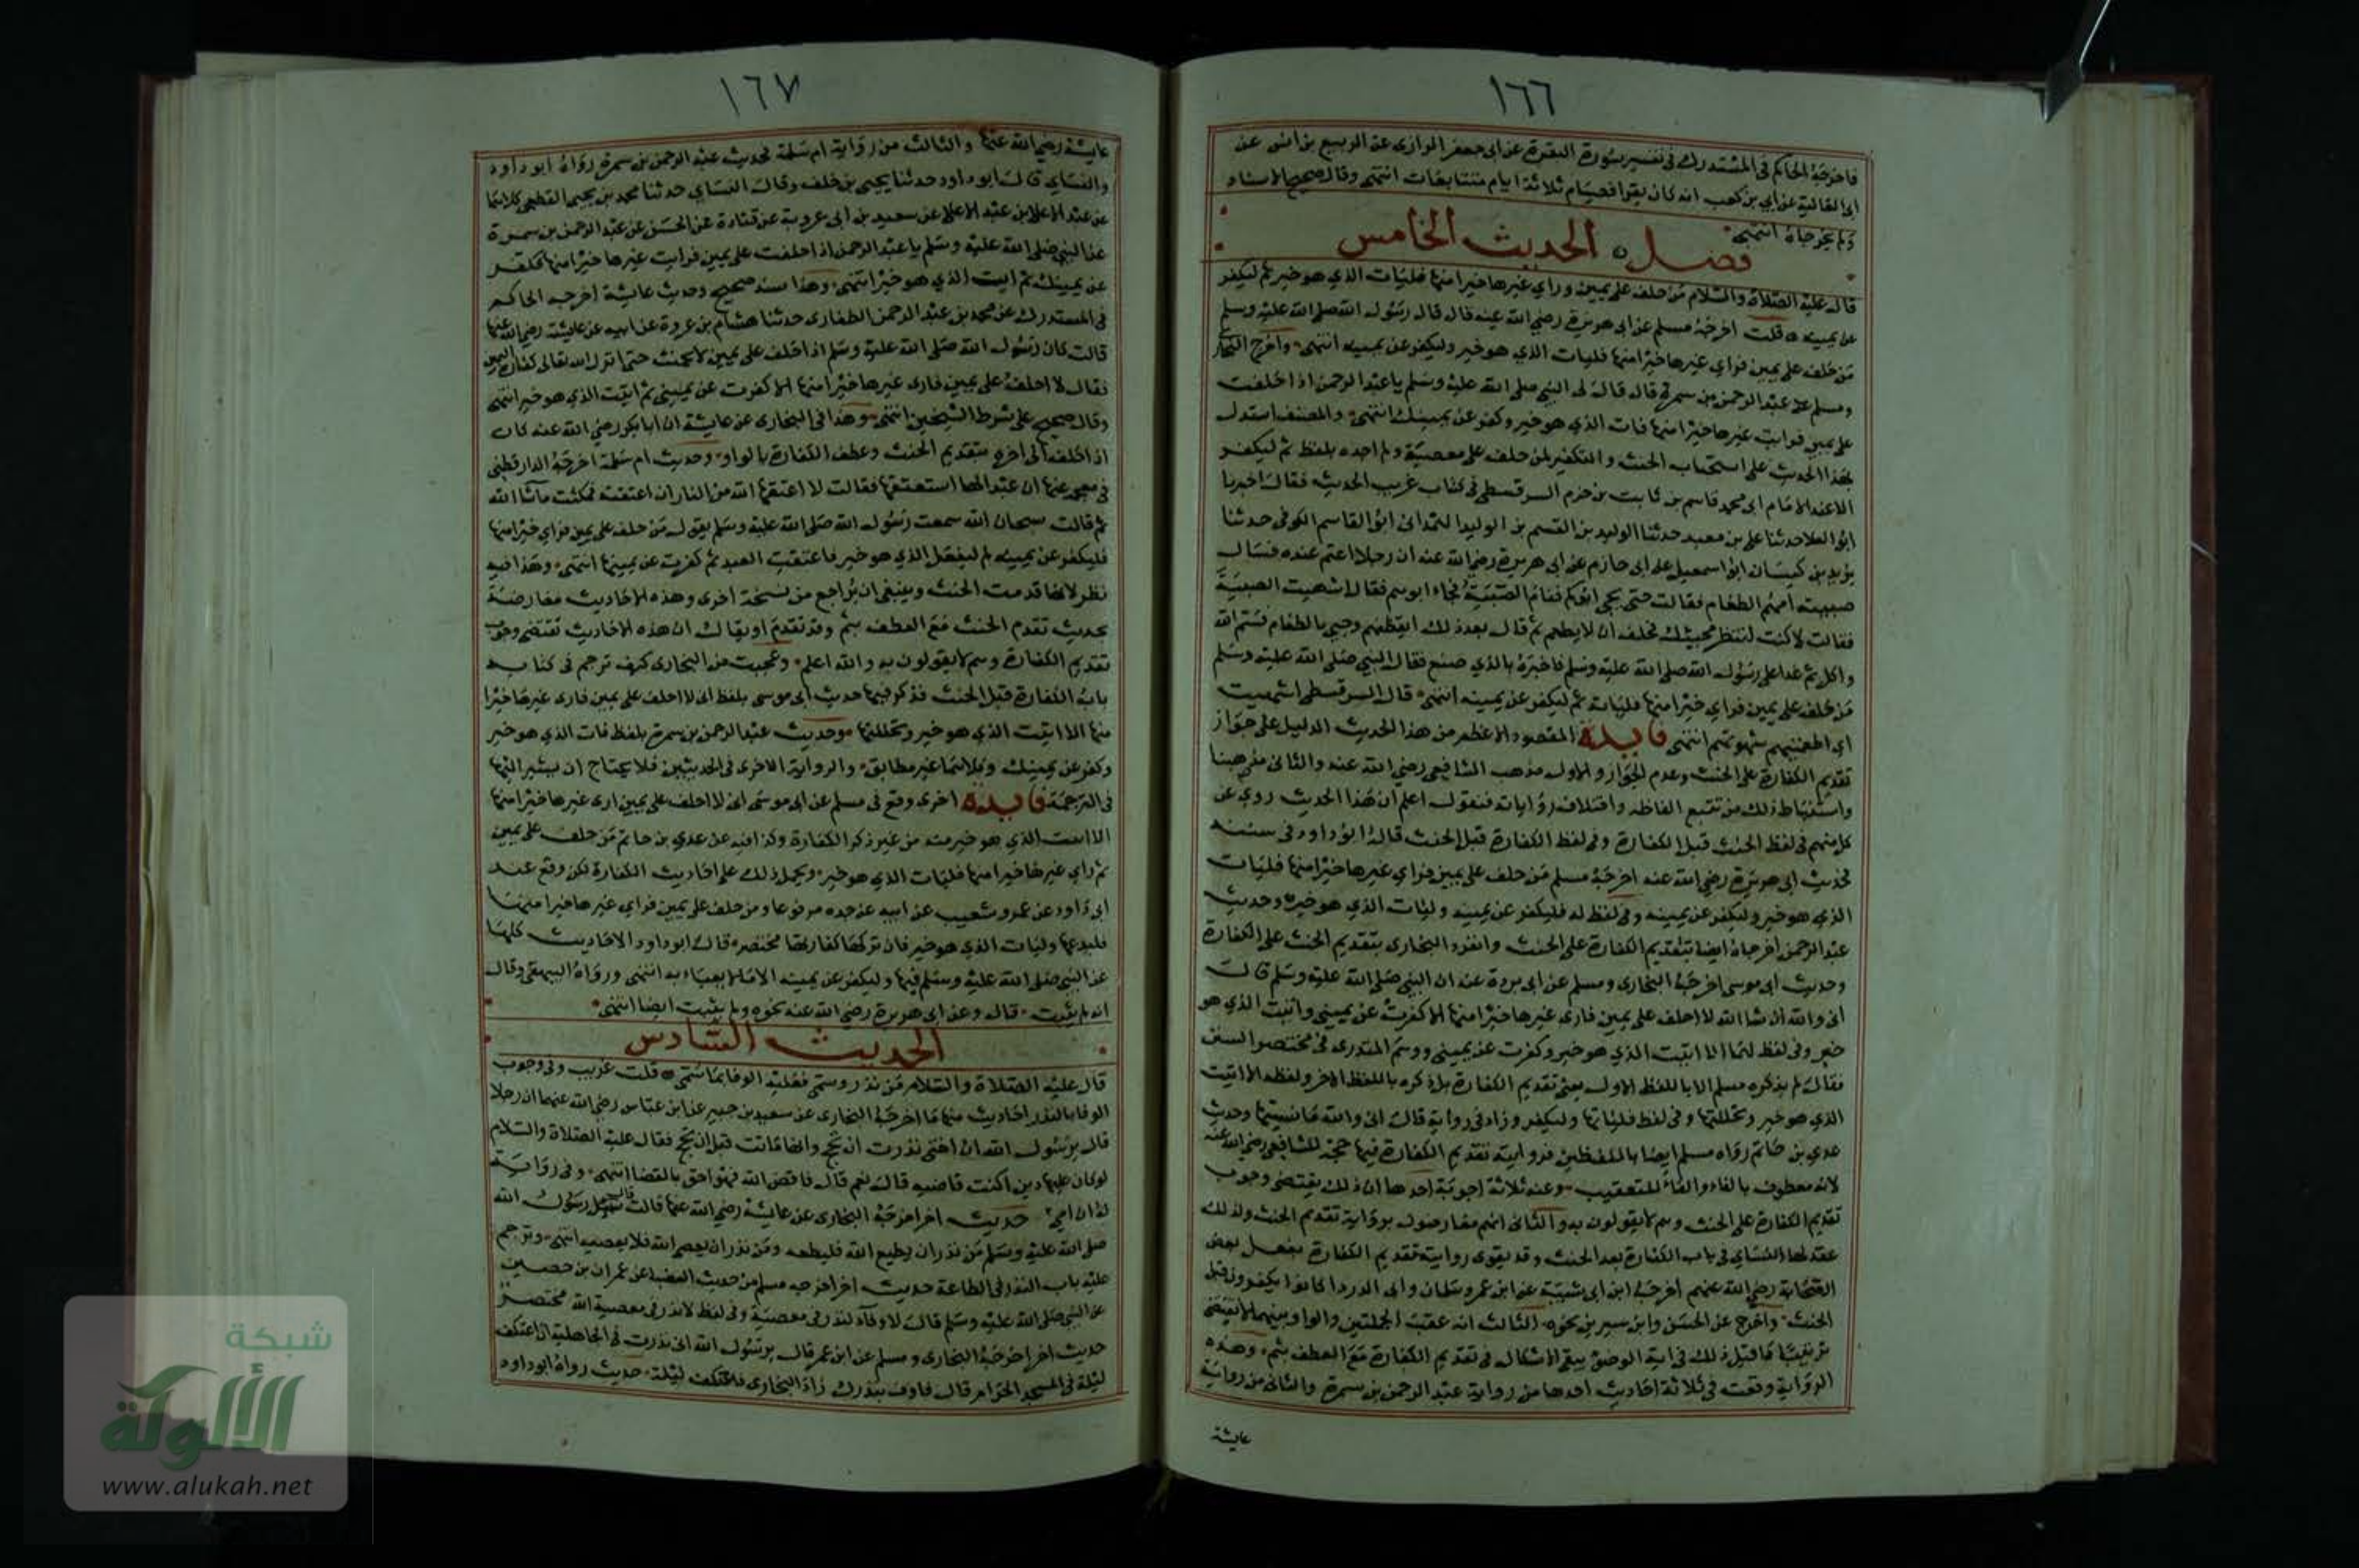 ١٦٦
فاخرجه الحاكم في المستدرك في تفسير سورة البقرة عن ابي جعفر الرازي عن الربيع بن انس عن
ابي العالية عن ابي بن كعب انه كان يقرا فصيام ثلاثة ايام متتابعات انتهى وقال صحيح الاسناد
ولم يخرجاه انتهى
فصل الحديث الخامس
قال عليه الصلاة والسلام من حلف على يمين وراي غيرها خيرا منها فليات الذي هو خير ثم ليكفر
عن يمينه قلت اخرجه مسلم عن ابي هريرة رضي الله عنه قال قال رسول الله صلى الله عليه وسلم
من حلف على يمين فراي غيرها خيرا منها فليات الذي هو خير وليكفر عن يمينه انتهى واخرج البخاري
ومسلم عن عبد الرحمن بن سمرة قال قال لي النبي صلى الله عليه وسلم يا عبد الرحمن اذا حلفت
على يمين فرايت غيرها خيرا منها فات الذي هو خير وكفر عن يمينك انتهى والمصنف استدل
بهذا الحديث على استحباب الحنث والتكفير لمن حلف على معصية ولم اجده بلفظ ثم ليكفر
الا عند الامام ابي محمد قاسم بن ثابت بن حزم السرقسطي في كتاب غريب الحديث فقال اخبرنا
ابو العلا حدثنا علي بن معبد حدثنا الوليد بن القسم بن الوليد الهمداني ابو القاسم الكوفي حدثنا
يزيد بن كيسان ابو اسمعيل عن ابي حازم عن ابي هريرة رضي الله عنه ان رجلا اعتم عنده فسال
صبيته امهم الطعام فقالت حتى يجي ابوكم فنام الصبية فجاء ابوهم فقال اشهيت الصبية
فقالت لا كنت انتظر مجيئك فحلف ان لا يطعم ثم قال بعد ذلك ايقظيهم وجيي بالطعام فسم الله
واكل ثم غدا على رسول الله صلى الله عليه وسلم فاخبره بالذي صنع فقال النبي صلى الله عليه وسلم
من حلف على يمين فراي خيرا منها فلياته ثم ليكفر عن يمينه انتهى قال السرقسطي اشهيت
اي اطعمتيهم شهوتهم انتهى فايدة المقصود الاعظم من هذا الحديث الدليل على جواز
تقديم الكفارة على الحنث وعدم الجواز والاول مذهب الشافعي رضي الله عنه والثاني مذهبنا
واستنباط ذلك من تتبع الفاظه واختلاف رواياته فنقول اعلم ان هذا الحديث روي عن
كل منهم في لفظ الحنث قبل الكفارة وفي لفظ الكفارة قبل الحنث قاله ابو داود في سننه
فحديث ابي هريرة رضي الله عنه اخرجه مسلم من حلف على يمين فراي غيرها خيرا منها فليات
الذي هو خير وليكفر عن يمينه وفي لفظ له فليكفر عن يمينه وليات الذي هو خير وحديث
عبد الرحمن اخرجاه ايضا بتقديم الكفارة على الحنث وانفرد البخاري بتقديم الحنث على الكفارة
وحديث ابي موسى اخرجه البخاري ومسلم عن ابي بردة عنه ان النبي صلى الله عليه وسلم قال
اني والله ان شا الله لا احلف على يمين فارى غيرها خيرا منها الا كفرت عن يميني واتيت الذي هو
خير وفي لفظ لهما الا اتيت الذي هو خير وكفرت عن يميني ووهم المنذري في مختصر السنن
فقال لم يذكره مسلم الا باللفظ الاول يعني تقديم الكفارة بل ذكره باللفظ الاخر ولفظه الا اتيت
الذي هو خير وتحللتها وفي لفظ فلياتها وليكفر وزاد في رواية قال اني والله ما نسيتها وحديث
عدي بن حاتم رواه مسلم ايضا باللفظين فرواية تقديم الكفارة فيها حجة للشافعي رضي الله عنه
لانه معطوف بالفاء والفاء للتعقيب وعنه ثلاثة اجوبة احدها ان ذلك يقتضي وجوب
تقديم الكفارة على الحنث وهم لا يقولون به والثاني انهم معارضون برواية تقديم الحنث ولذلك
عقد لها النساي في باب الكفارة بعد الحنث وقد يقوى رواية تقديم الكفارة بفعل بعض
الصحابة رضي الله عنهم اخرج ابن ابي شيبة عن ابن عمر وسلمان وابي الدرداء كانوا يكفرون قبل
الحنث واخرج عن الحسن وابن سيرين نحوه الثالث انه عقب الجملتين والواو بينهما لا يقتضي
ترتيبا كما قيل ذلك في اية الوضو يبقى الاشكال في تقديم الكفارة مع العطف بثم وهذه
الرواية وقعت في ثلاثة احاديث احدها من رواية عبد الرحمن بن سمرة والثاني من رواية
عايشة
١٦٧
عايشة رضي الله عنها والثالث من رواية ام سلمة فحديث عبد الرحمن بن سمرة رواه ابو داود
والنساي قال ابو داود حدثنا يحيى بن خلف وقال النساي حدثنا محمد بن يحيى القطعي كلاهما
عن عبد الاعلى بن عبد الاعلى عن سعيد بن ابي عروبة عن قتادة عن الحسن عن عبد الرحمن بن سمرة
عن النبي صلى الله عليه وسلم يا عبد الرحمن اذا حلفت على يمين فرايت غيرها خيرا منها فكفر
عن يمينك ثم ايت الذي هو خير انتهى وهذا سند صحيح وحديث عايشة اخرجه الحاكم
في المستدرك عن محمد بن عبد الرحمن الطفاوي حدثنا هشام بن عروة عن ابيه عن عايشة رضي الله عنها
قالت كان رسول الله صلى الله عليه وسلم اذا حلف على يمين لا يحنث حتى انزل الله تعالى كفارة اليمين
فقال لا احلف على يمين فارى غيرها خيرا منها الا كفرت عن يميني ثم اتيت الذي هو خير انتهى
وقال صحيح على شرط الشيخين انتهى وهذا في البخاري عن عايشة ان ابا بكر رضي الله عنه كان
اذا حلف الى اخره بتقديم الحنث وعطف الكفارة بالواو وحديث ام سلمة اخرجه الدارقطني
في معجمه عنها ان عبدا لها استعتقها فقالت لا اعتقها الله من النار ان اعتقته فمكثت ما شا الله
ثم قالت سبحان الله سمعت رسول الله صلى الله عليه وسلم يقول من حلف على يمين فراي خيرا منها
فليكفر عن يمينه ثم ليفعل الذي هو خير فاعتقت العبد ثم كفرت عن يمينها انتهى وهذا فيه
نظر لانها قدمت الحنث وينبغي ان يراجع من نسخة اخرى وهذه الاحاديث معارضة
بحديث تقدم الحنث مع العطف بثم وقد تقدم او يقال ان هذه الاحاديث تقتضي وجوب
تقديم الكفارة وهم لا يقولون به والله اعلم وعجبت من البخاري كيف ترجم في كتابه
باب الكفارة قبل الحنث فذكر فيها حديث ابي موسى بلفظ اني لا احلف على يمين فارى غيرها خيرا
منها الا اتيت الذي هو خير وتحللتها وحديث عبد الرحمن بن سمرة بلفظ فات الذي هو خير
وكفر عن يمينك وكلاهما غير مطابق والرواية الاخرى في الحديثين فلا يحتاج ان يشير اليها
في الترجمة فايدة اخرى وقع في مسلم عن ابي موسى اني لا احلف على يمين ارى غيرها خيرا منها
الا اتيت الذي هو خير منه من غير ذكر الكفارة وكذا فيه عن عدي بن حاتم من حلف على يمين
ثم راي غيرها خيرا منها فليات الذي هو خير ويحمل ذلك على احاديث الكفارة لكن وقع عند
ابي داود عن عمرو بن شعيب عن ابيه عن جده مرفوعا ومن حلف على يمين فراي غيرها خيرا منها
فليدعها وليات الذي هو خير فان تركها كفارتها مختصر قال ابو داود الاحاديث كلها
عن النبي صلى الله عليه وسلم فيها وليكفر عن يمينه الا ما لا يعباء به انتهى ورواه البيهقي وقال
انه لم يثبت قال وعن ابي هريرة رضي الله عنه نحوه ولم يثبت ايضا انتهى
الحديث السادس
قال عليه الصلاة والسلام من نذر وسمى فعليه الوفا بما سمى قلت غريب وفي وجوب
الوفا بالنذر احاديث منها ما اخرجه البخاري عن سعيد بن جبير عن ابن عباس رضي الله عنهما ان رجلا
قال يرسول الله ان اختي نذرت ان تحج وانها ماتت قبل ان تحج فقال عليه الصلاة والسلام
لو كان عليها دين اكنت قاضيه قال نعم قال فاقض الله فهو احق بالقضا انتهى وفي رواية
له ان امي حديث اخر اخرجه البخاري عن عايشة رضي الله عنها قالت قال رسول الله
صلى الله عليه وسلم من نذر ان يطيع الله فليطعه ومن نذر ان يعصي الله فلا يعصه انتهى وترجم
عليه باب النذر في الطاعة حديث اخر اخرجه مسلم من حديث العضباء عن عمران بن حصين
عن النبي صلى الله عليه وسلم قال لا وفاء لنذر في معصية وفي لفظ لا نذر في معصية الله مختصر
حديث اخر اخرجه البخاري ومسلم عن ابن عمر قال يرسول الله اني نذرت في الجاهلية ان اعتكف
ليلة في المسجد الحرام قال فاوف بنذرك زاد البخاري فاعتكف ليلة حديث رواه ابو داود
شبكة
الألوكة
www.alukah.net